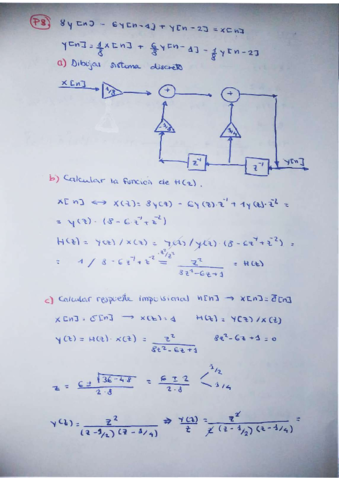 P8. 8y[n] - 6y[n-1] + y[n-2] = x[n]
y[n] = 1/8 x[n] + 6/8 y[n-1] - 1/8 y[n-2]
a) Dibujas sistema discreto
x[n]
1/8
+
+
z⁻¹
z⁻¹
y[n]
b) Calcular la funcion de H(z).
x[n] ↔ X(z) = 8y(z) - 6y(z)·z⁻¹ + 1y(z)·z⁻² =
= y(z) · (8 - 6z⁻¹ + z⁻²)
H(z) = y(z) / x(z) = y(z) / y(z) (8 - 6z⁻¹ + z⁻²) =
= 1 / 8 - 6z⁻¹ + z⁻² = z² / 8z² - 6z + 1 = H(z)
c) Calcular respuesta impulsional h[n] → x[n] = δ[n]
x[n] = δ[n] → x(z) = 1 H(z) = Y(z) / X(z)
y(z) = H(z) · X(z) = z² / 8z² - 6z + 1 8z² - 6z + 1 = 0
z = 6 ± √36 - 4·8 / 2·8 = 6 ± 2 / 2·8 1/2 1/4
y(z) = z² / (z - 1/2)(z - 1/4) ⇒ y(z)/z = z² / z (z - 1/2)(z - 1/4) =